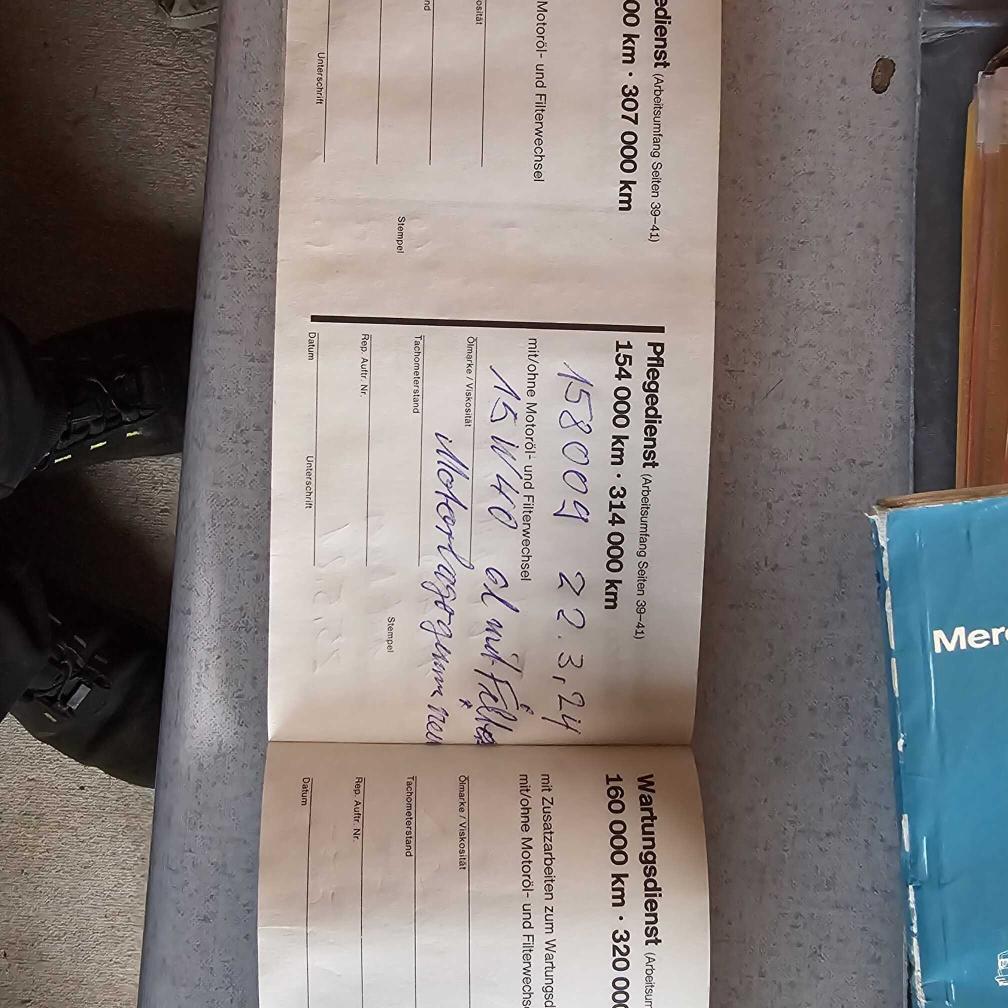 edienst (Arbeitsumfang Seiten 39–41)
00 km · 307 000 km
Motoröl- und Filterwechsel
osität
nd
Stempel
Unterschrift
Pflegedienst (Arbeitsumfang Seiten 39–41)
154 000 km · 314 000 km
158009 22.3,24
mit/ohne Motoröl- und Filterwechsel
15W40 öl mit Filter
Ölmarke / Viskosität
Motorlagegummi neu
Tachometerstand
Rep. Auftr. Nr.
Stempel
Datum
Unterschrift
Wartungsdienst (Arbeitsum
160 000 km · 320 000
mit Zusatzarbeiten zum Wartungsd
mit/ohne Motoröl- und Filterwechs
Ölmarke / Viskosität
Tachometerstand
Rep. Auftr. Nr.
Datum
Merc